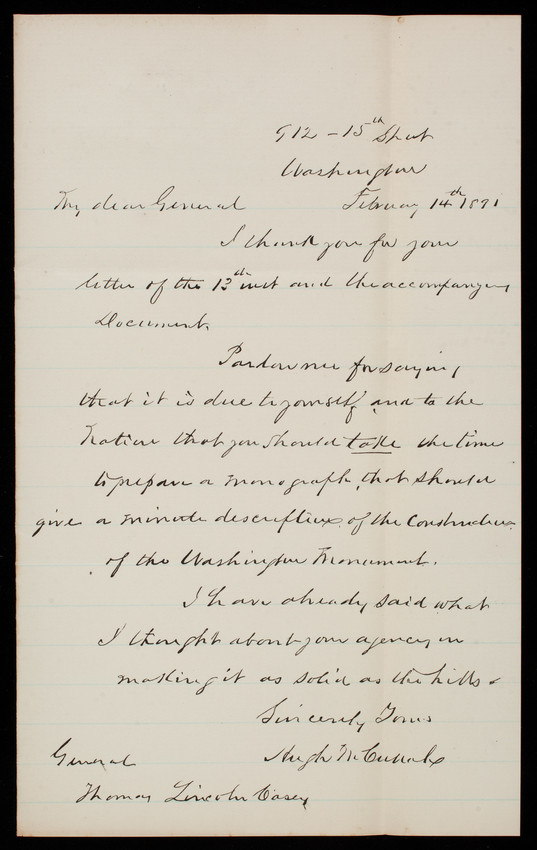 912 - 15th Street
Washington
My dear General February 14th 1891
I thank you for your
letter of the 13th inst and the accompanying
Document.
Pardon me for saying
that it is due to yourself, and to the
Nation that you should take the time
to prepare a monograph, that should
give a minute description of the construction
of the Washington Monument.
I have already said what
I thought about your agency in
making it as solid as the hills.
Sincerely Yours
General Hugh McCulloch
Thomas Lincoln Casey